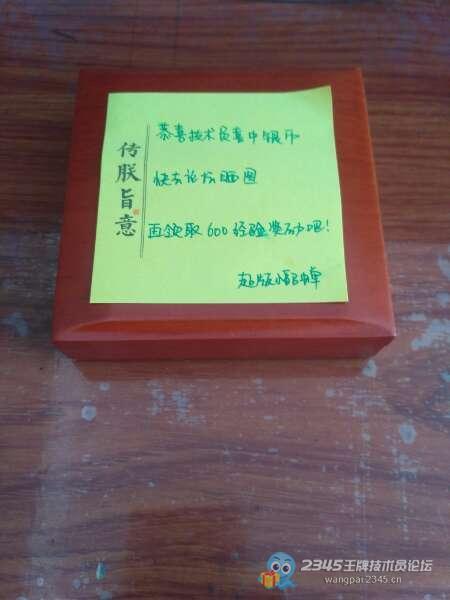 传朕旨意
恭喜技术员喜中银币
快去论坛晒图
再领取600经验奖励吧!
超版
2345王牌技术员论坛
wangpai.2345.cn